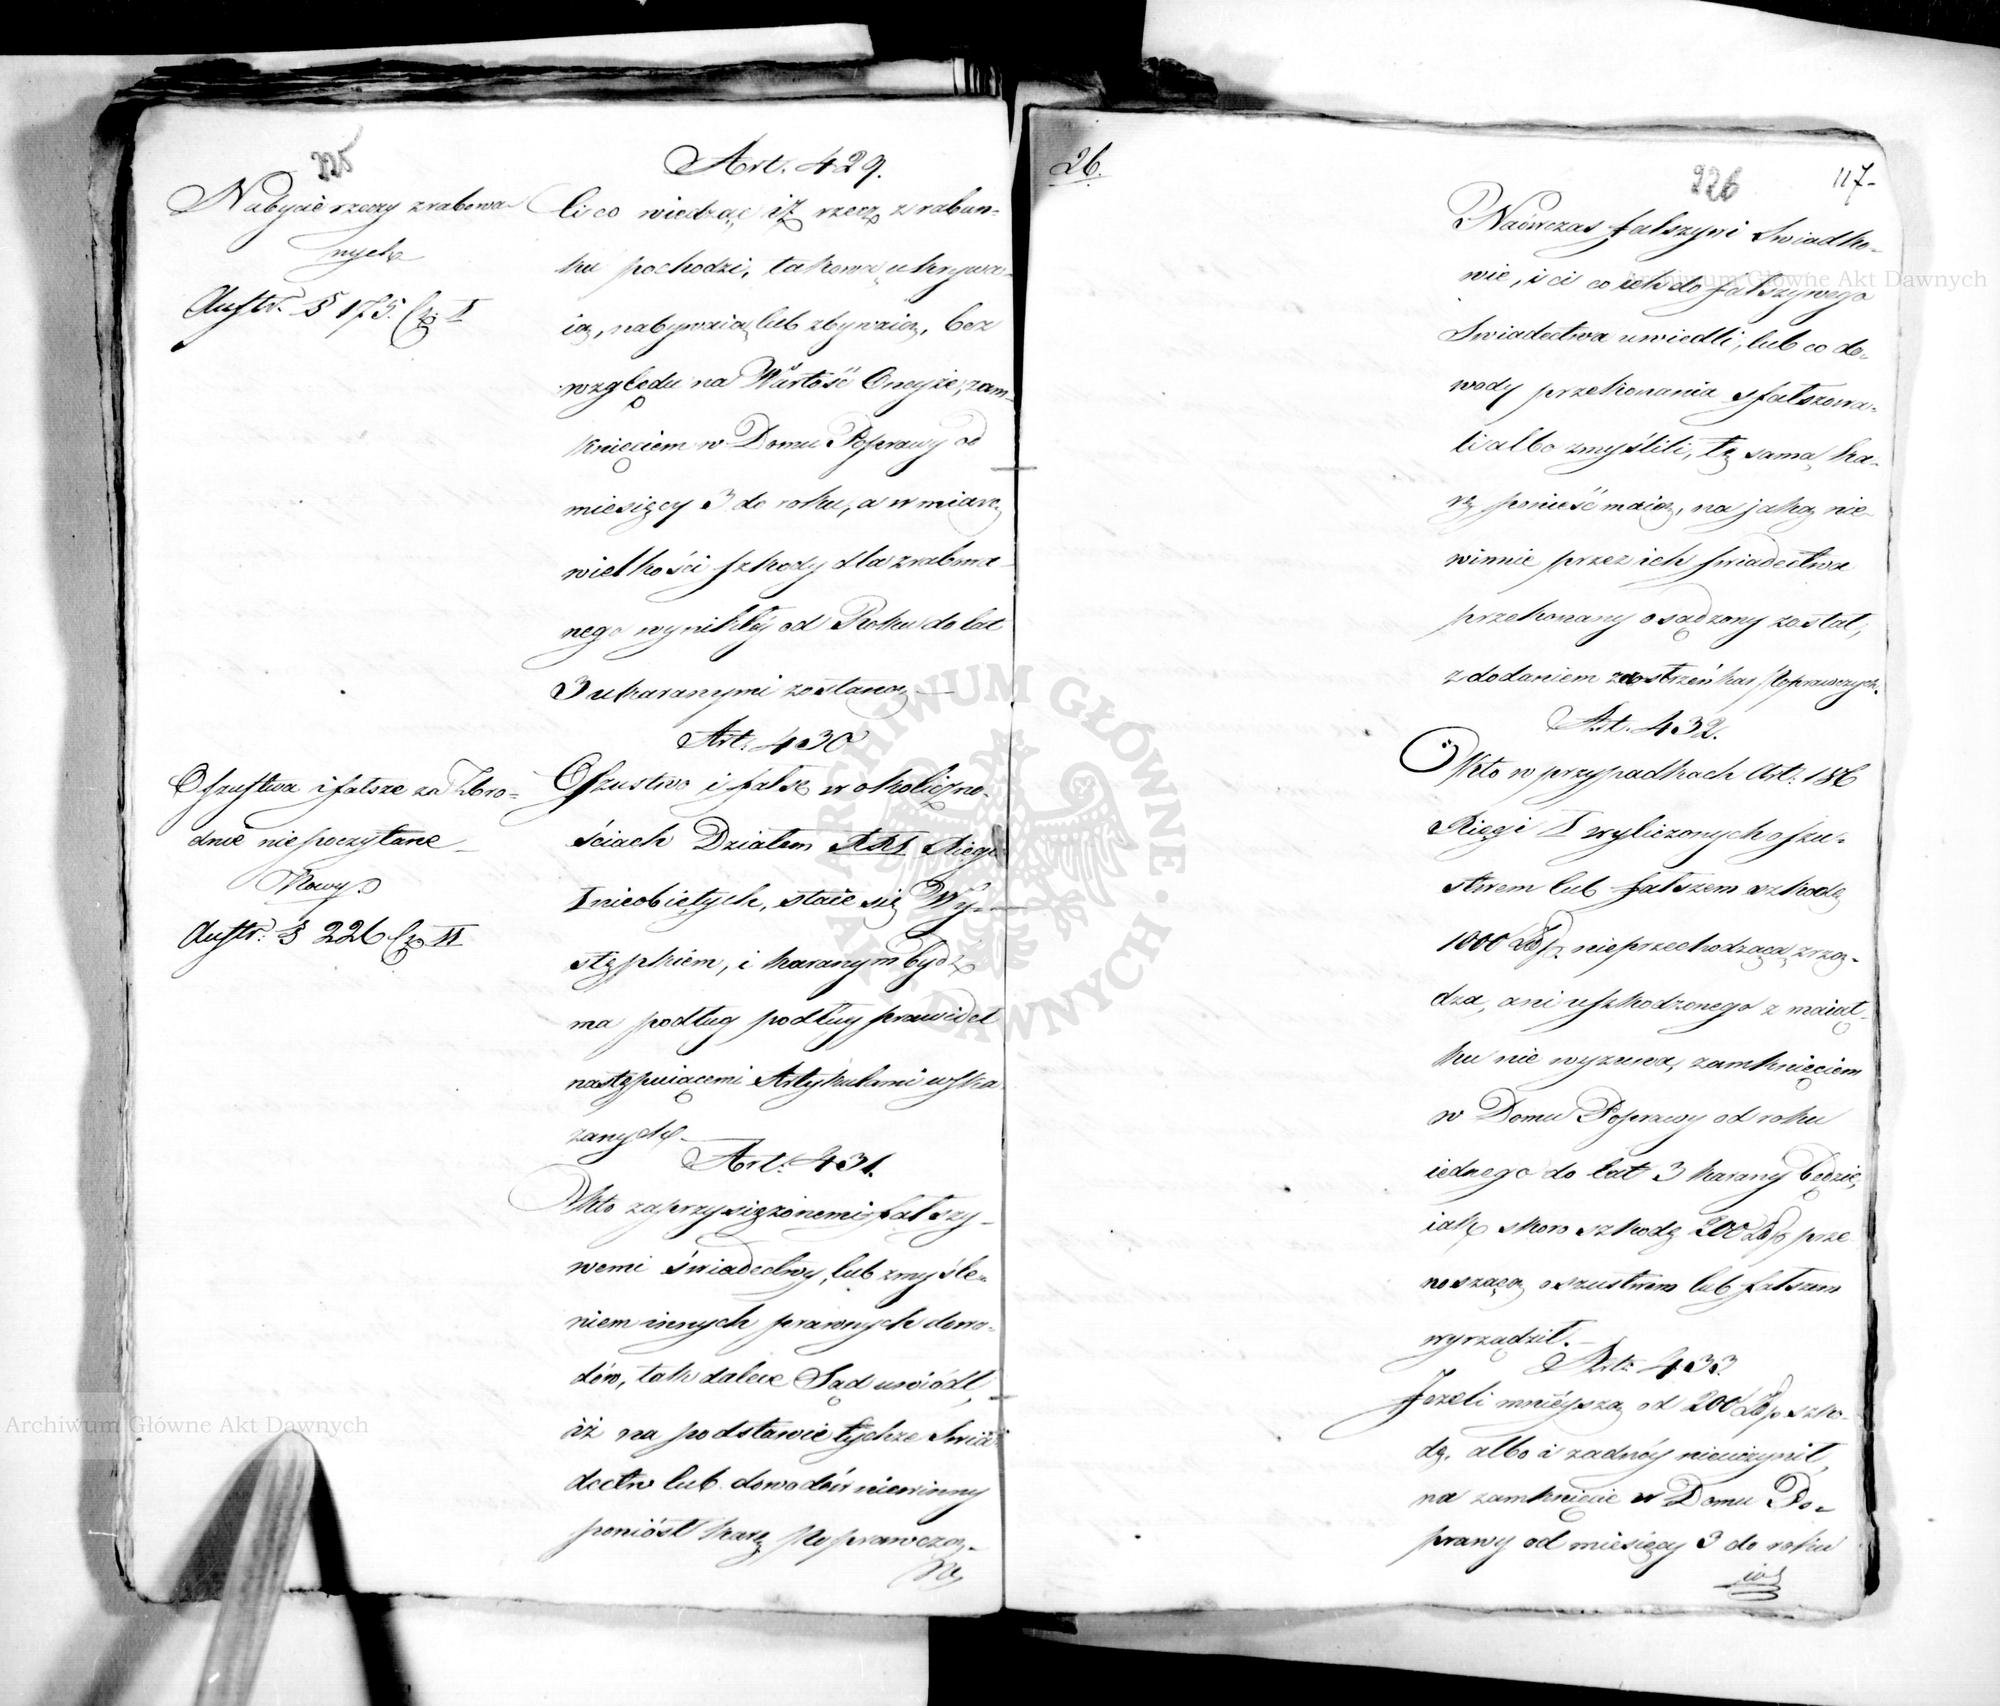 225
Art. 429.
Nabycie rzeczy zrabowa-
nych
Austr. § 175. Cz. I
Ci co wiedząc iż rzecz z rabun-
ku pochodzi, takową ukrywa-
ią, nabywaią lub zbywaią, bez
względu na Wartość Oneyże, zam-
knięciem w Domu Poprawy od
miesięcy 3 do roku, a w miarę
wielkości szkody dla zrabowa-
nego wynikłéj od Roku do lat
3 ukaranymi zostaną —
Art. 430
Oszustwa i fałsze za Zbro-
dnie niepoczytane
Nowy.
Austr: § 226 Cz. II
Oszustwo i fałsz w okoliczno-
ściach Działem XXI Xięgi
I nieobiętych, staie się Wy-
stępkiem, i karanym bydź
ma podług podług prawideł
następuiącemi Artykułami wska-
zanych —
Art. 431.
Kto zaprzysiężonemi fałszy-
wemi świadectwy, lub zmyśle-
niem innych prawnych dowo-
dów, tak dalece Sąd uwiódł,
iż na podstawie tychże Świa-
dectw lub dowodów niewinny
poniósł karę Poprawczą.
26.
226
117-
Naówczas fałszywi Swiadko-
wie, i ci co ich do fałszywego
Swiadectwa uwiedli, lub co do-
wody przekonania sfałszowa-
li albo zmyślili, tę samą ka-
rę ponieść maią, na jaką nie-
winnie przez ich swiadectwa
przekonany osądzony został,
z dodaniem zaostrzeń kar Poprawczych.
Art. 432.
Kto w przypadkach Art. 186
Xięgi I wyliczonych oszu-
stwem lub fałszem szkodę
1000 Złp. nieprzechodzącą zrzą-
dza, ani uszkodzonego z maiąt-
ku nie wyzuwa, zamknięciem
w Domu Poprawy od roku
iednego do lat 3 karany będzie,
iak skoro szkodę 200 Złp prze-
noszącą oszustwem lub fałszem
wyrządził. —
Art. 433
Jeżeli mniéyszą od 200 Złp szko-
dę, albo i żadnéy nieuczynił,
na zamknięcie w Domu Po-
prawy od miesięcy 3 do roku
Archiwum Główne Akt Dawnych
Archiwum Główne Akt Dawnych
ARCHIWUM GŁÓWNE AKT DAWNYCH